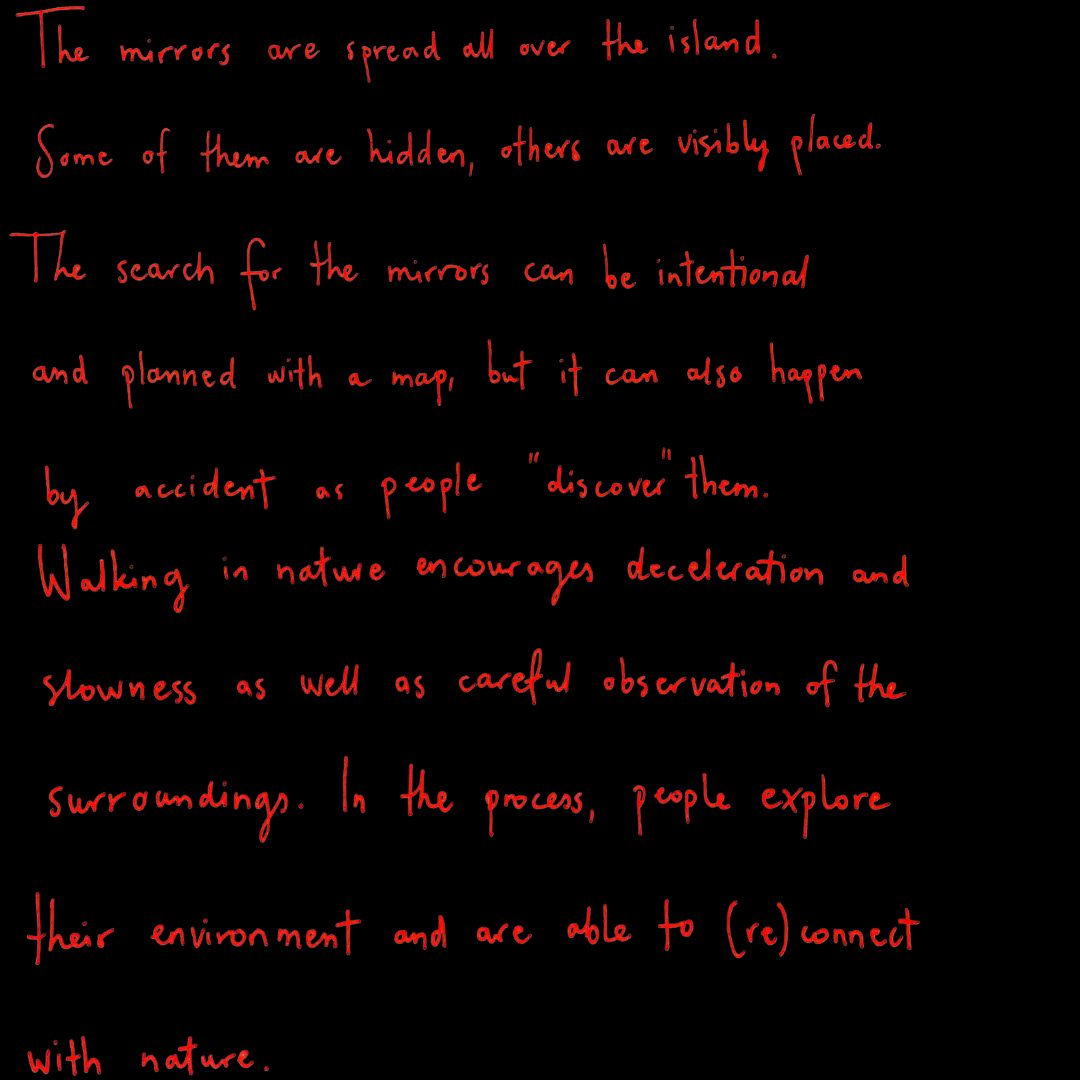 The mirrors are spread all over the island.
Some of them are hidden, others are visibly placed.
The search for the mirrors can be intentional
and planned with a map, but it can also happen
by accident as people "discover" them.
Walking in nature encourages deceleration and
slowness as well as careful observation of the
surroundings. In the process, people explore
their environment and are able to (re)connect
with nature.